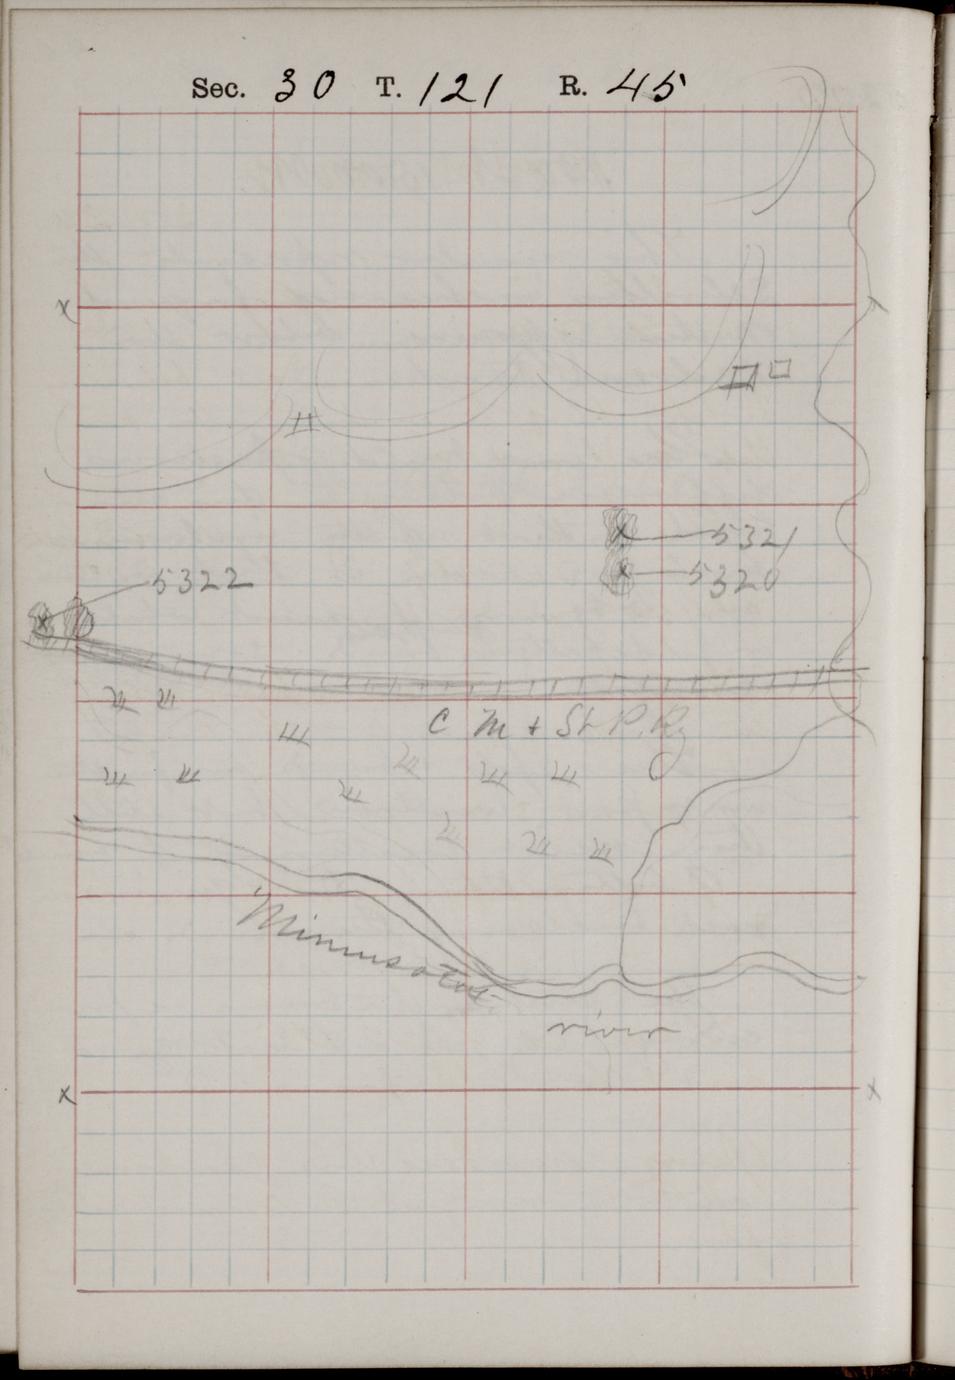 Sec. 30 T. 121 R. 45
x x
5321
5320
5322
C M + St P. Ry
Minnesota
river
x x